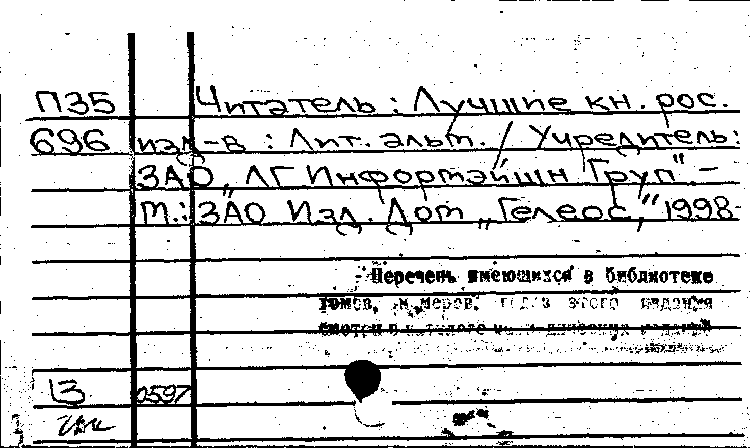 П35 Читатель : Лучшие кн. рос.
696 изд-в : Лит. альм. / Учредитель:
ЗАО „ЛГ Информэйшн Груп". –
М.: ЗАО Изд. Дом „Гелеос," 1998-
Перечень имеющихся в библиотеке
томов, номеров, годов этого издания
смотри в каталоге
13 0597